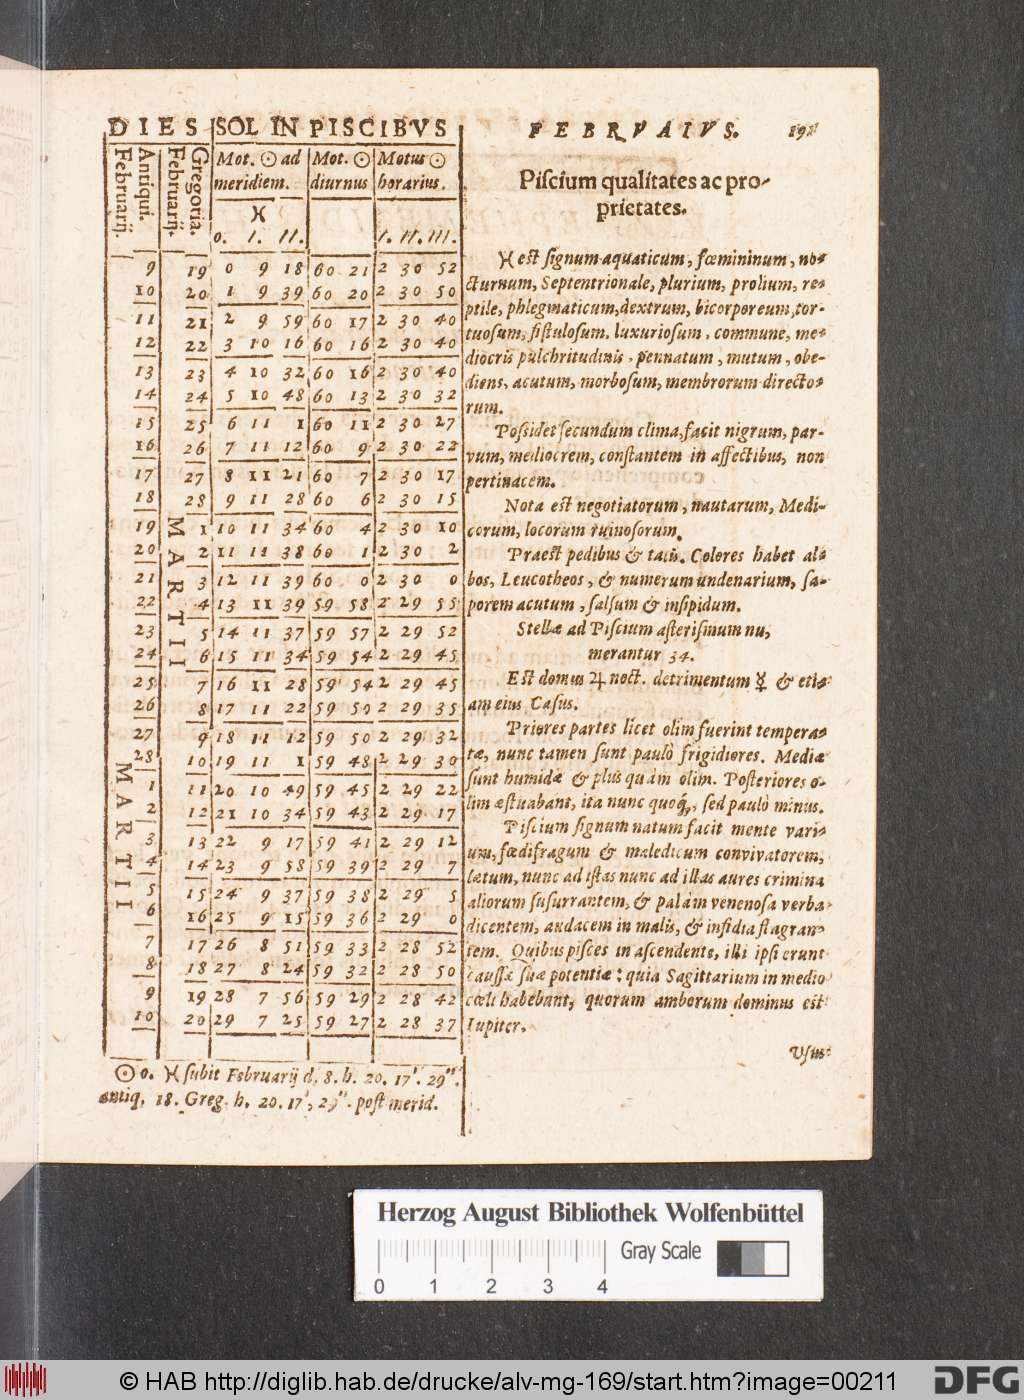 DIES SOL IN PISCIBVS
Antiqui. Februarij.
Gregoria. Februarij.
Mot. ☉ ad meridiem.
Mot. ☉ diurnus
Motus ☉ horarius.
♓
0. I. II. I. II. III.
9 19 0 9 18 60 21 2 30 52
10 20 1 9 39 60 20 2 30 50
11 21 2 9 59 60 17 2 30 40
12 22 3 10 16 60 16 2 30 40
13 23 4 10 32 60 16 2 30 40
14 24 5 10 48 60 13 2 30 32
15 25 6 11 1 60 11 2 30 27
16 26 7 11 12 60 9 2 30 22
17 27 8 11 21 60 7 2 30 17
18 28 9 11 28 60 6 2 30 15
MARTII
19 1 10 11 34 60 4 2 30 10
20 2 11 11 38 60 1 2 30 2
21 3 12 11 39 60 0 2 30 0
22 4 13 11 39 59 58 2 29 55
23 5 14 11 37 59 57 2 29 52
24 6 15 11 34 59 54 2 29 45
25 7 16 11 28 59 54 2 29 45
26 8 17 11 22 59 50 2 29 35
27 9 18 11 12 59 50 2 29 32
28 10 19 11 1 59 48 2 29 30
MARTII
1 11 20 10 49 59 45 2 29 22
2 12 21 10 34 59 43 2 29 17
3 13 22 9 17 59 41 2 29 12
4 14 23 9 58 59 39 2 29 7
5 15 24 9 37 59 38 2 29 5
6 16 25 9 15 59 36 2 29 0
7 17 26 8 51 59 33 2 28 52
8 18 27 8 24 59 32 2 28 50
9 19 28 7 56 59 29 2 28 42
10 20 29 7 25 59 27 2 28 37
☉ 0. ♓ ſubit Februarij d. 8. h. 20. 17'. 29''.
antiq. 18. Greg. h. 20. 17', 29''. poſt merid.
FEBRVAIVS. 191
Piſcium qualitates ac pro-
prietates.
♓ eſt ſignum aquaticum, fœmininum, no-
cturnum, Septentrionale, plurium, prolium, re-
ptile, phlegmaticum, dextrum, bicorporeum, tor-
tuoſum, fiſtuloſum, luxurioſum, commune, me-
diocris pulchritudinis, pennatum, mutum, obe-
diens, acutum, morboſum, membrorum directo-
rum.
Poſſidet ſecundum clima, facit nigrum, par-
vum, mediocrem, conſtantem in affectibus, non
pertinacem.
Nota eſt negotiatorum, nautarum, Medi-
corum, locorum ruinoſorum.
Præeſt pedibus & talis. Colores habet al-
bos, Leucotheos, & numerum undenarium, ſa-
porem acutum, ſalſum & inſipidum.
Stellæ ad Piſcium aſteriſmum nu-
merantur 34.
Eſt domus ♃ noct. detrimentum ☿ & eti-
am eius Caſus.
Priores partes licet olim fuerint tempera-
tæ, nunc tamen ſunt paulò frigidiores. Mediæ
ſunt humidæ & plus quàm olim. Poſteriores o-
lim æſtuabant, ita nunc quoq;, ſed paulò minus.
Piſcium ſignum natum facit mente vari-
um, fœdifragum & maledicum convivatorem,
lætum, nunc ad iſtas nunc ad illas aures crimina
aliorum ſuſurrantem, & palàm venenoſa verba
dicentem, audacem in malis, & inſidia flagran-
tem. Quibus piſces in aſcendente, illi ipſi erunt
cauſſæ ſuæ potentiæ: quia Sagittarium in medio
cœli habebant, quorum amborum dominus eſt
Iupiter.
Vſus
Herzog August Bibliothek Wolfenbüttel
Gray Scale
0 1 2 3 4
© HAB http://diglib.hab.de/drucke/alv-mg-169/start.htm?image=00211
DFG